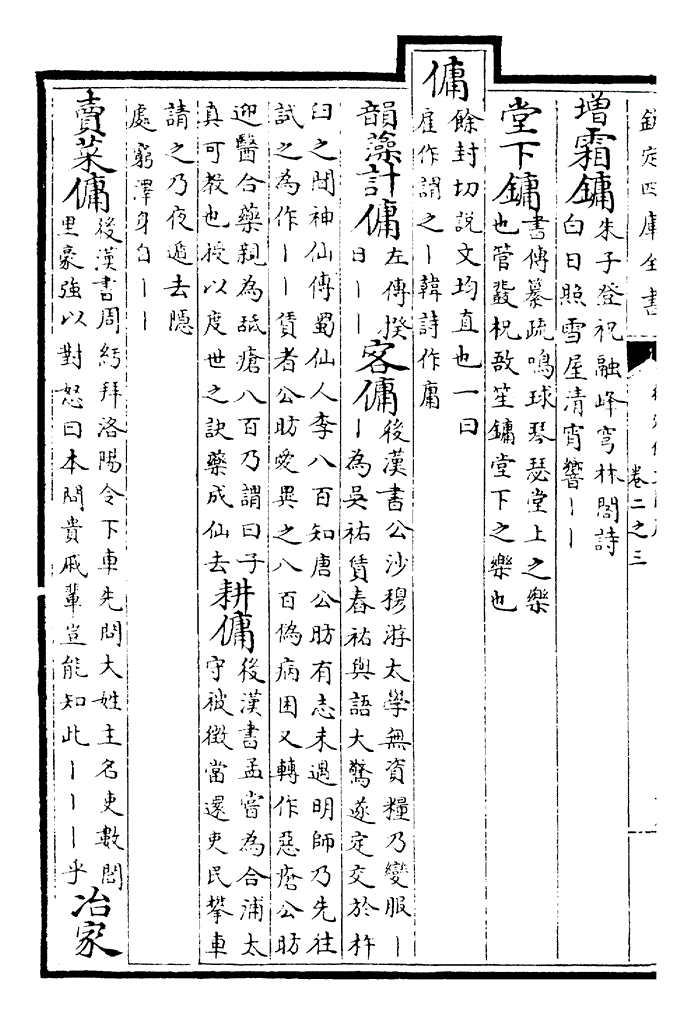 欽定四庫全書
卷二之三
増霜鏞
朱子登祝融峰穹林閣詩
白日照雪屋清宵響丨丨
堂下鏞
書傳纂疏鳴球琴瑟堂上之樂
也管鼗柷敔笙鏞堂下之樂也
傭
餘封切說文均直也一曰
雇作謂之丨韓詩作庸
韻藻計傭
左傳揆
日丨丨
客傭
後漢書公沙穆游太學無資糧乃變服丨
丨為吳祐賃舂祐與語大驚遂定交於杵
臼之間神仙傳蜀仙人李八百知唐公昉有志未遇明師乃先往
試之為作丨丨賃者公昉愛異之八百偽病困又轉作惡瘡公昉
迎醫合藥親為舐瘡八百乃謂曰子
真可教也授以度世之訣藥成仙去
耕傭
後漢書孟嘗為合浦太
守被徵當還吏民攀車
請之乃夜遁去隱
處窮澤身自丨丨
賣菜傭
後漢書周紆拜洛陽令下車先問大姓主名吏數閭
里豪強以對怒曰本問貴戚輩豈能知此丨丨丨乎
冶家